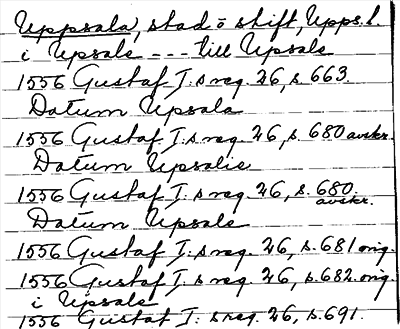 Uppsala, stad o stift, Upps. l.
i Upsale --- till Upsale
1556 Gustaf I: s reg. 26, s. 663.
Datum Upsala
1556 Gustaf I: s reg. 26, s. 680 avskr.
Datum Upsalie
1556 Gustaf I: s reg. 26, s. 680.
avskr.
Datum Upsale
1556 Gustaf I: s reg. 26, s. 681 orig.
1556 Gustaf I: s reg. 26, s. 682 orig.
i Upsale
1556 Gustaf I: s reg. 26, s. 691.